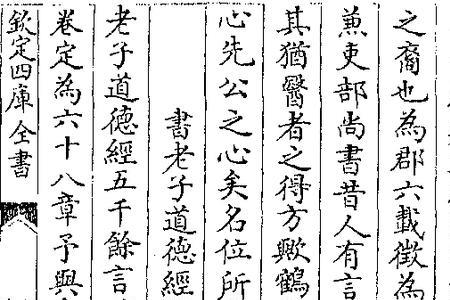 之裔也為郡六載徴為
兼吏部尚書昔人有言
其猶醫者之得方歟鶴
心先公之心矣名位所
書老子道徳經
老子道徳經五千餘言
卷定為六十八章予興
欽定四庫全書